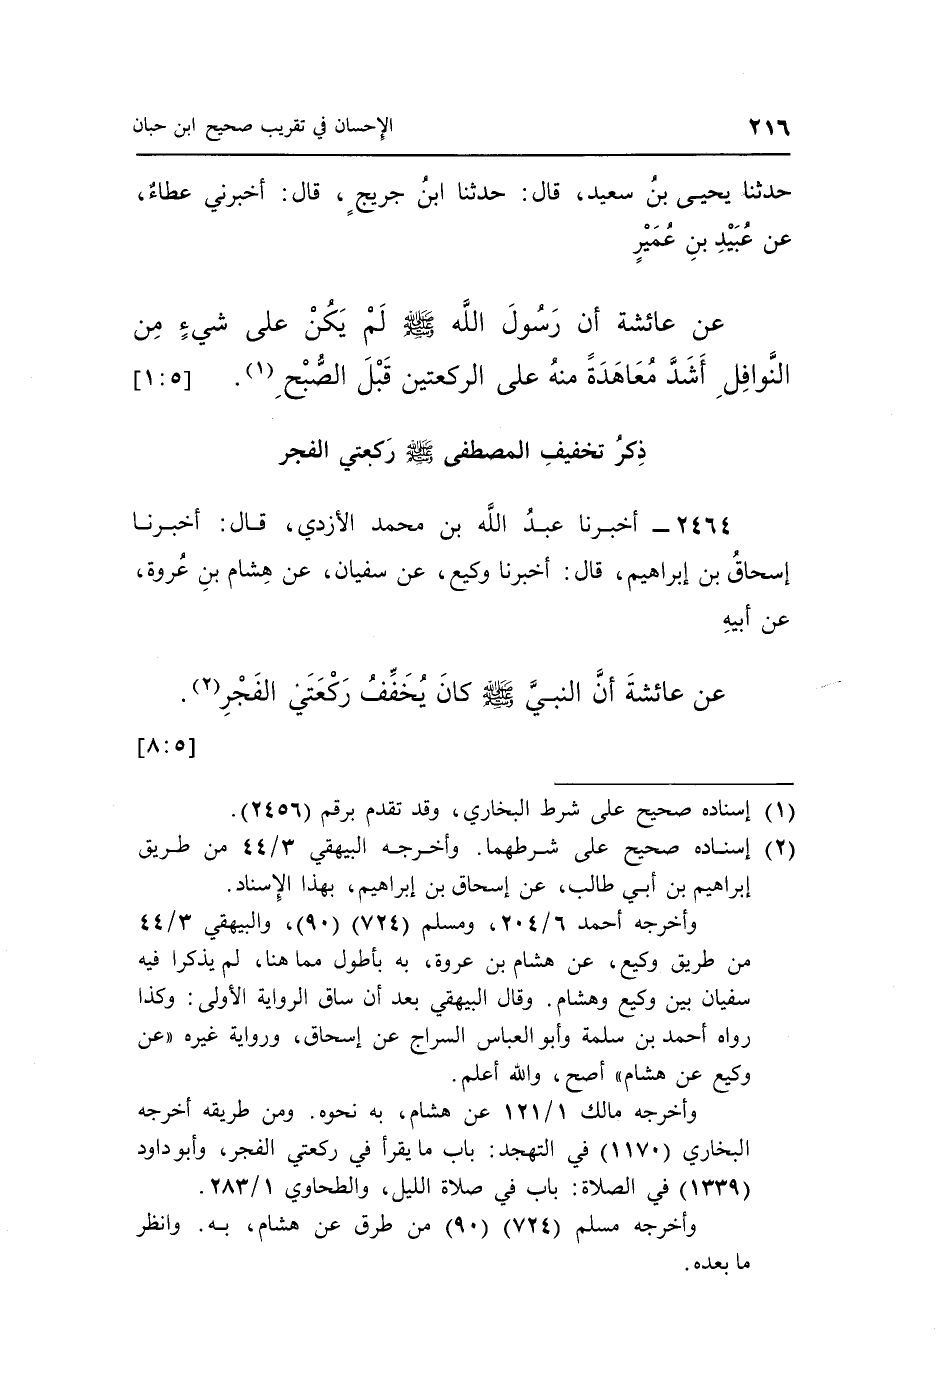 ٢١٦ الإحسان في تقريب صحيح ابن حبان
حدثنا يحيى بنُ سعيد، قال: حدثنا ابنُ جريجٍ، قال: أخبرني عطاءٌ،
عن عُبَيْدِ بنِ عُمَيْرٍ
عن عائشة أن رَسُولَ اللَّه ﷺ لَمْ يَكُنْ على شيءٍ مِن
النَّوافِلِ أَشَدَّ مُعَاهَدَةً منهُ على الركعتين قَبْلَ الصُّبْحِ (١). [١:٥]
ذِكرُ تخفيفِ المصطفى ﷺ رَكعتي الفجر
٢٤٦٤ ــ أخبرنا عبدُ اللَّه بن محمد الأزدي، قال: أخبرنا
إسحاقُ بن إبراهيم، قال: أخبرنا وكيع، عن سفيان، عن هِشام بنِ عُروة،
عن أبيهِ
عن عائشةَ أنَّ النبيَّ ﷺ كانَ يُخَفِّفُ رَكْعَتَيْ الفَجْرِ(٢).
[٨:٥]
(١) إسناده صحيح على شرط البخاري، وقد تقدم برقم (٢٤٥٦).
(٢) إسناده صحيح على شرطهما. وأخرجه البيهقي ٤٤/٣ من طريق
إبراهيم بن أبي طالب، عن إسحاق بن إبراهيم، بهذا الإسناد.
وأخرجه أحمد ٢٠٤/٦، ومسلم (٧٢٤) (٩٠)، والبيهقي ٤٤/٣
من طريق وكيع، عن هشام بن عروة، به بأطول مما هنا، لم يذكرا فيه
سفيان بين وكيع وهشام. وقال البيهقي بعد أن ساق الرواية الأولى: وكذا
رواه أحمد بن سلمة وأبو العباس السراج عن إسحاق، ورواية غيره «عن
وكيع عن هشام» أصح، والله أعلم.
وأخرجه مالك ١٢١/١ عن هشام، به نحوه. ومن طريقه أخرجه
البخاري (١١٧٠) في التهجد: باب ما يقرأ في ركعتي الفجر، وأبو داود
(١٣٣٩) في الصلاة: باب في صلاة الليل، والطحاوي ٢٨٣/١.
وأخرجه مسلم (٧٢٤) (٩٠) من طرق عن هشام، به. وانظر
ما بعده.